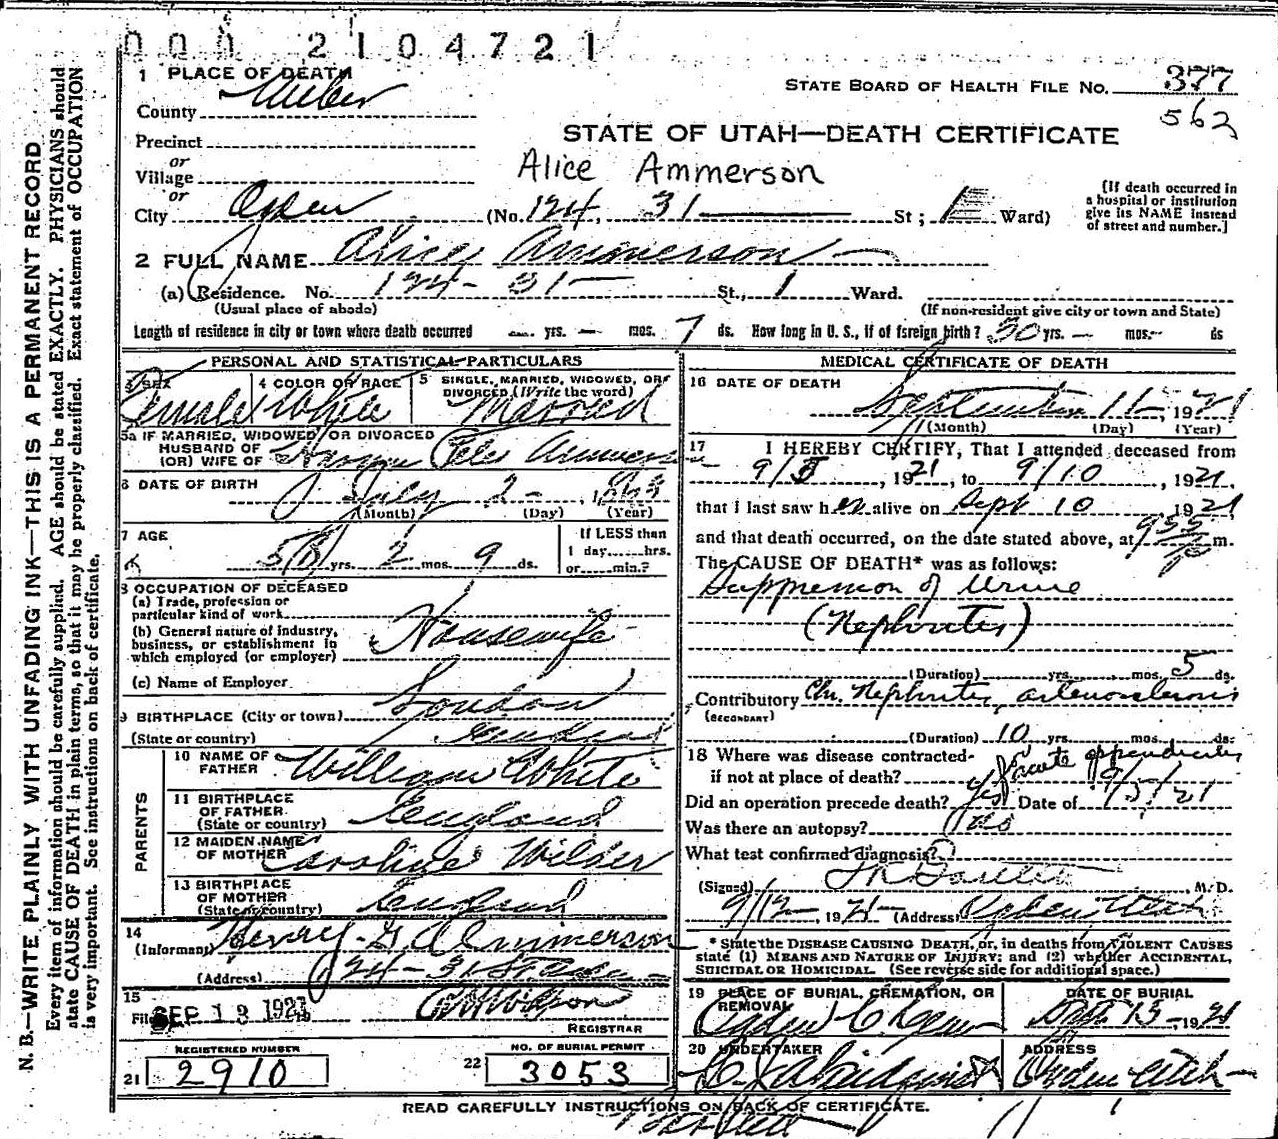 0 0 0 2 1 0 4 7 2 1
1 PLACE OF DEATH
County Weber
STATE BOARD OF HEALTH FILE No. 377
562
Precinct
or
Village
or
STATE OF UTAH—DEATH CERTIFICATE
Alice Ammerson
City Ogden (No. 124, 31 St; 1 Ward)
[If death occurred in a hospital or institution give its NAME instead of street and number.]
2 FULL NAME Alice Ammerson
(a) Residence. No. 124 - 31 — St., 1 Ward.
(Usual place of abode) (If non-resident give city or town and State)
Length of residence in city or town where death occurred — yrs. — mos. 7 ds. How long in U. S., if of foreign birth? 30 yrs. — mos. ds
PERSONAL AND STATISTICAL PARTICULARS
3 SEX Female
4 COLOR OR RACE White
5 SINGLE, MARRIED, WIDOWED, OR DIVORCED (Write the word) Married
5a IF MARRIED, WIDOWED, OR DIVORCED
HUSBAND OF
(OR) WIFE OF Pete Ammerson
6 DATE OF BIRTH July 2 - , 1863
(Month) (Day) (Year)
7 AGE 58 yrs. 2 mos. 9 ds.
If LESS than
1 day......hrs.
or......min.?
8 OCCUPATION OF DECEASED
(a) Trade, profession or
particular kind of work
(b) General nature of industry,
business, or establishment in
which employed (or employer) Housewife
(c) Name of Employer
9 BIRTHPLACE (City or town) London
(State or country) England
PARENTS
10 NAME OF
FATHER William White
11 BIRTHPLACE
OF FATHER
(State or country) England
12 MAIDEN NAME
OF MOTHER Caroline Wilder
13 BIRTHPLACE
OF MOTHER
(State or country) England
14
(Informant) Henry G Ammerson
(Address) 124 - 31 St Ogden
15
Filed SEP 13 1921
REGISTRAR
REGISTERED NUMBER
21 2910
NO. OF BURIAL PERMIT
22 3053
MEDICAL CERTIFICATE OF DEATH
16 DATE OF DEATH
September 11 — , 1921
(Month) (Day) (Year)
17 I HEREBY CERTIFY, That I attended deceased from
9/5 , 1921, to 9/10 , 1921,
that I last saw her alive on Sept 10 1921,
and that death occurred, on the date stated above, at 9 55 P m.
The CAUSE OF DEATH* was as follows:
Suppression of Urine
(Nephritis)
(Duration) yrs. mos. 5 ds.
Contributory Chr. Nephritis, arteriosclerosis
(SECONDARY)
(Duration) 10 yrs. mos. ds.
18 Where was disease contracted
if not at place of death? acute appendicitis
Did an operation precede death? Yes Date of 9/5/21
Was there an autopsy? No
What test confirmed diagnosis?
(Signed) M. D.
9/12, 1921 (Address) Ogden Utah
* State the DISEASE CAUSING DEATH, or, in deaths from VIOLENT CAUSES
state (1) MEANS AND NATURE OF INJURY; and (2) whether ACCIDENTAL,
SUICIDAL OR HOMICIDAL. (See reverse side for additional space.)
19 PLACE OF BURIAL, CREMATION, OR REMOVAL
Ogden
DATE OF BURIAL
Sept 13 - 1921
20 UNDERTAKER
ADDRESS
Ogden Utah
READ CAREFULLY INSTRUCTIONS ON BACK OF CERTIFICATE.
N. B.—WRITE PLAINLY WITH UNFADING INK—THIS IS A PERMANENT RECORD
Every item of information should be carefully supplied. AGE should be stated EXACTLY. PHYSICIANS should
state CAUSE OF DEATH in plain terms, so that it may be properly classified. Exact statement of OCCUPATION
is very important. See instructions on back of certificate.